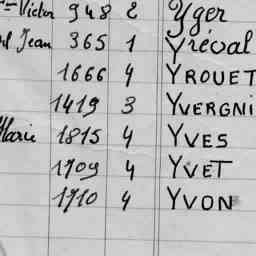 Victor 948 2 Yger
Jean 365 1 Yréval
1666 4 YROUET
1419 3 YVERGNI
Marie 1815 4 YVES
1709 4 YVET
1710 4 YVON